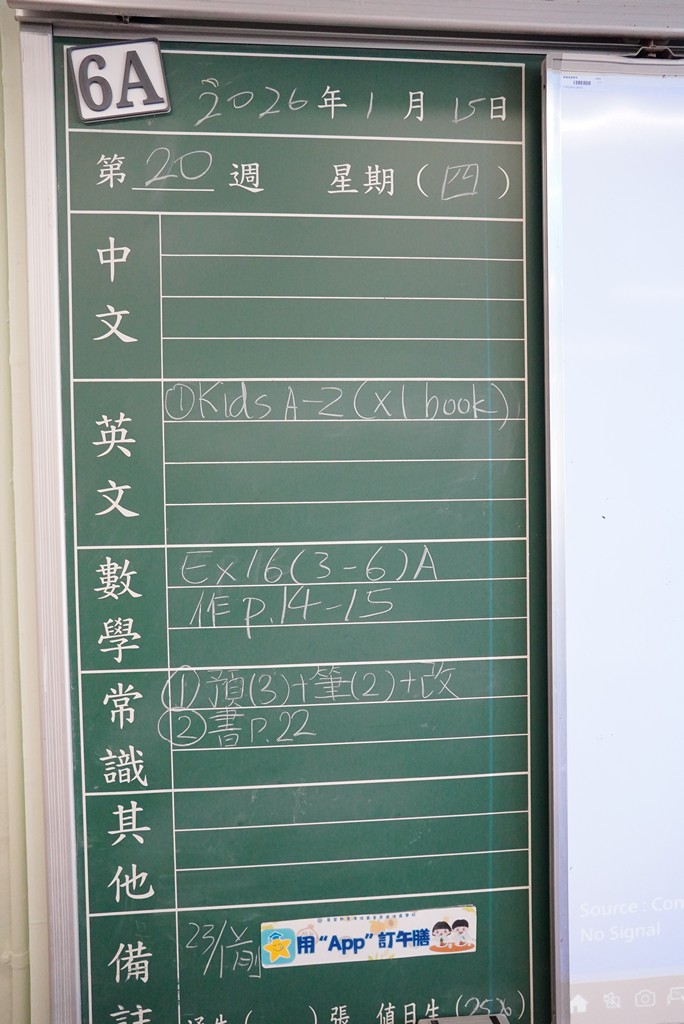 6A
2026年1月15日
第20週 星期(四)
中文
英文
①Kids A-Z (x1 book)
數學
Ex16(3-6)A
作p.14-15
常識
①預(3)+筆(2)+改
②書p.22
其他
備註
23/1前
用“App”訂午膳
張 值日生(
Source : Com
No Signal